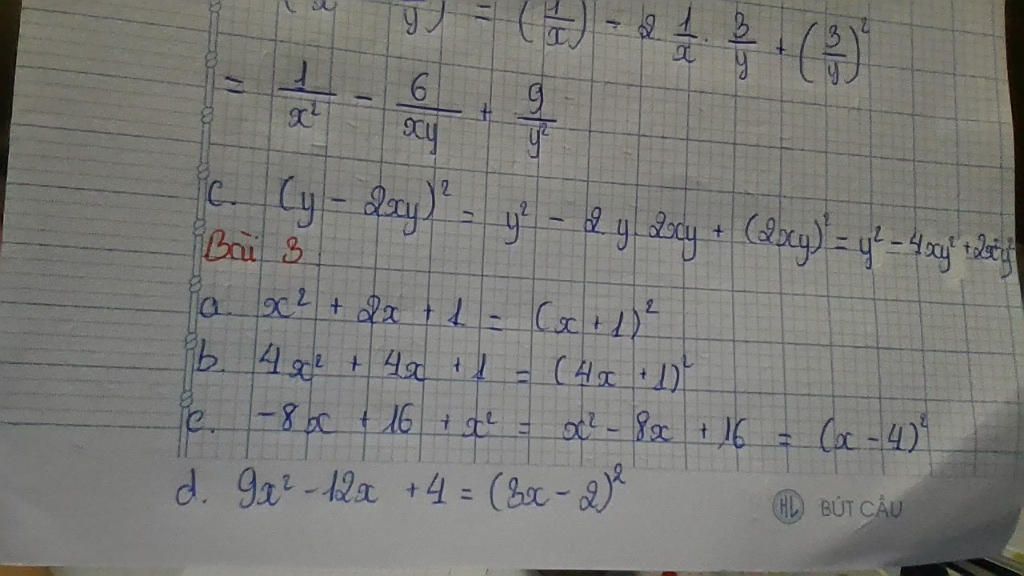 (x y) = (1/x) - 2 1/x . 3/y + (3/y)²
= 1/x² - 6/xy + 9/y²
c. (y - 2xy)² = y² - 2 y 2xy + (2xy)² = y² - 4xy² + 2x²y²
Bài 3
a. x² + 2x + 1 = (x + 1)²
b. 4x² + 4x + 1 = (4x + 1)²
c. -8x + 16 + x² = x² - 8x + 16 = (x - 4)²
d. 9x² - 12x + 4 = (3x - 2)²
HL BÚT CÂU